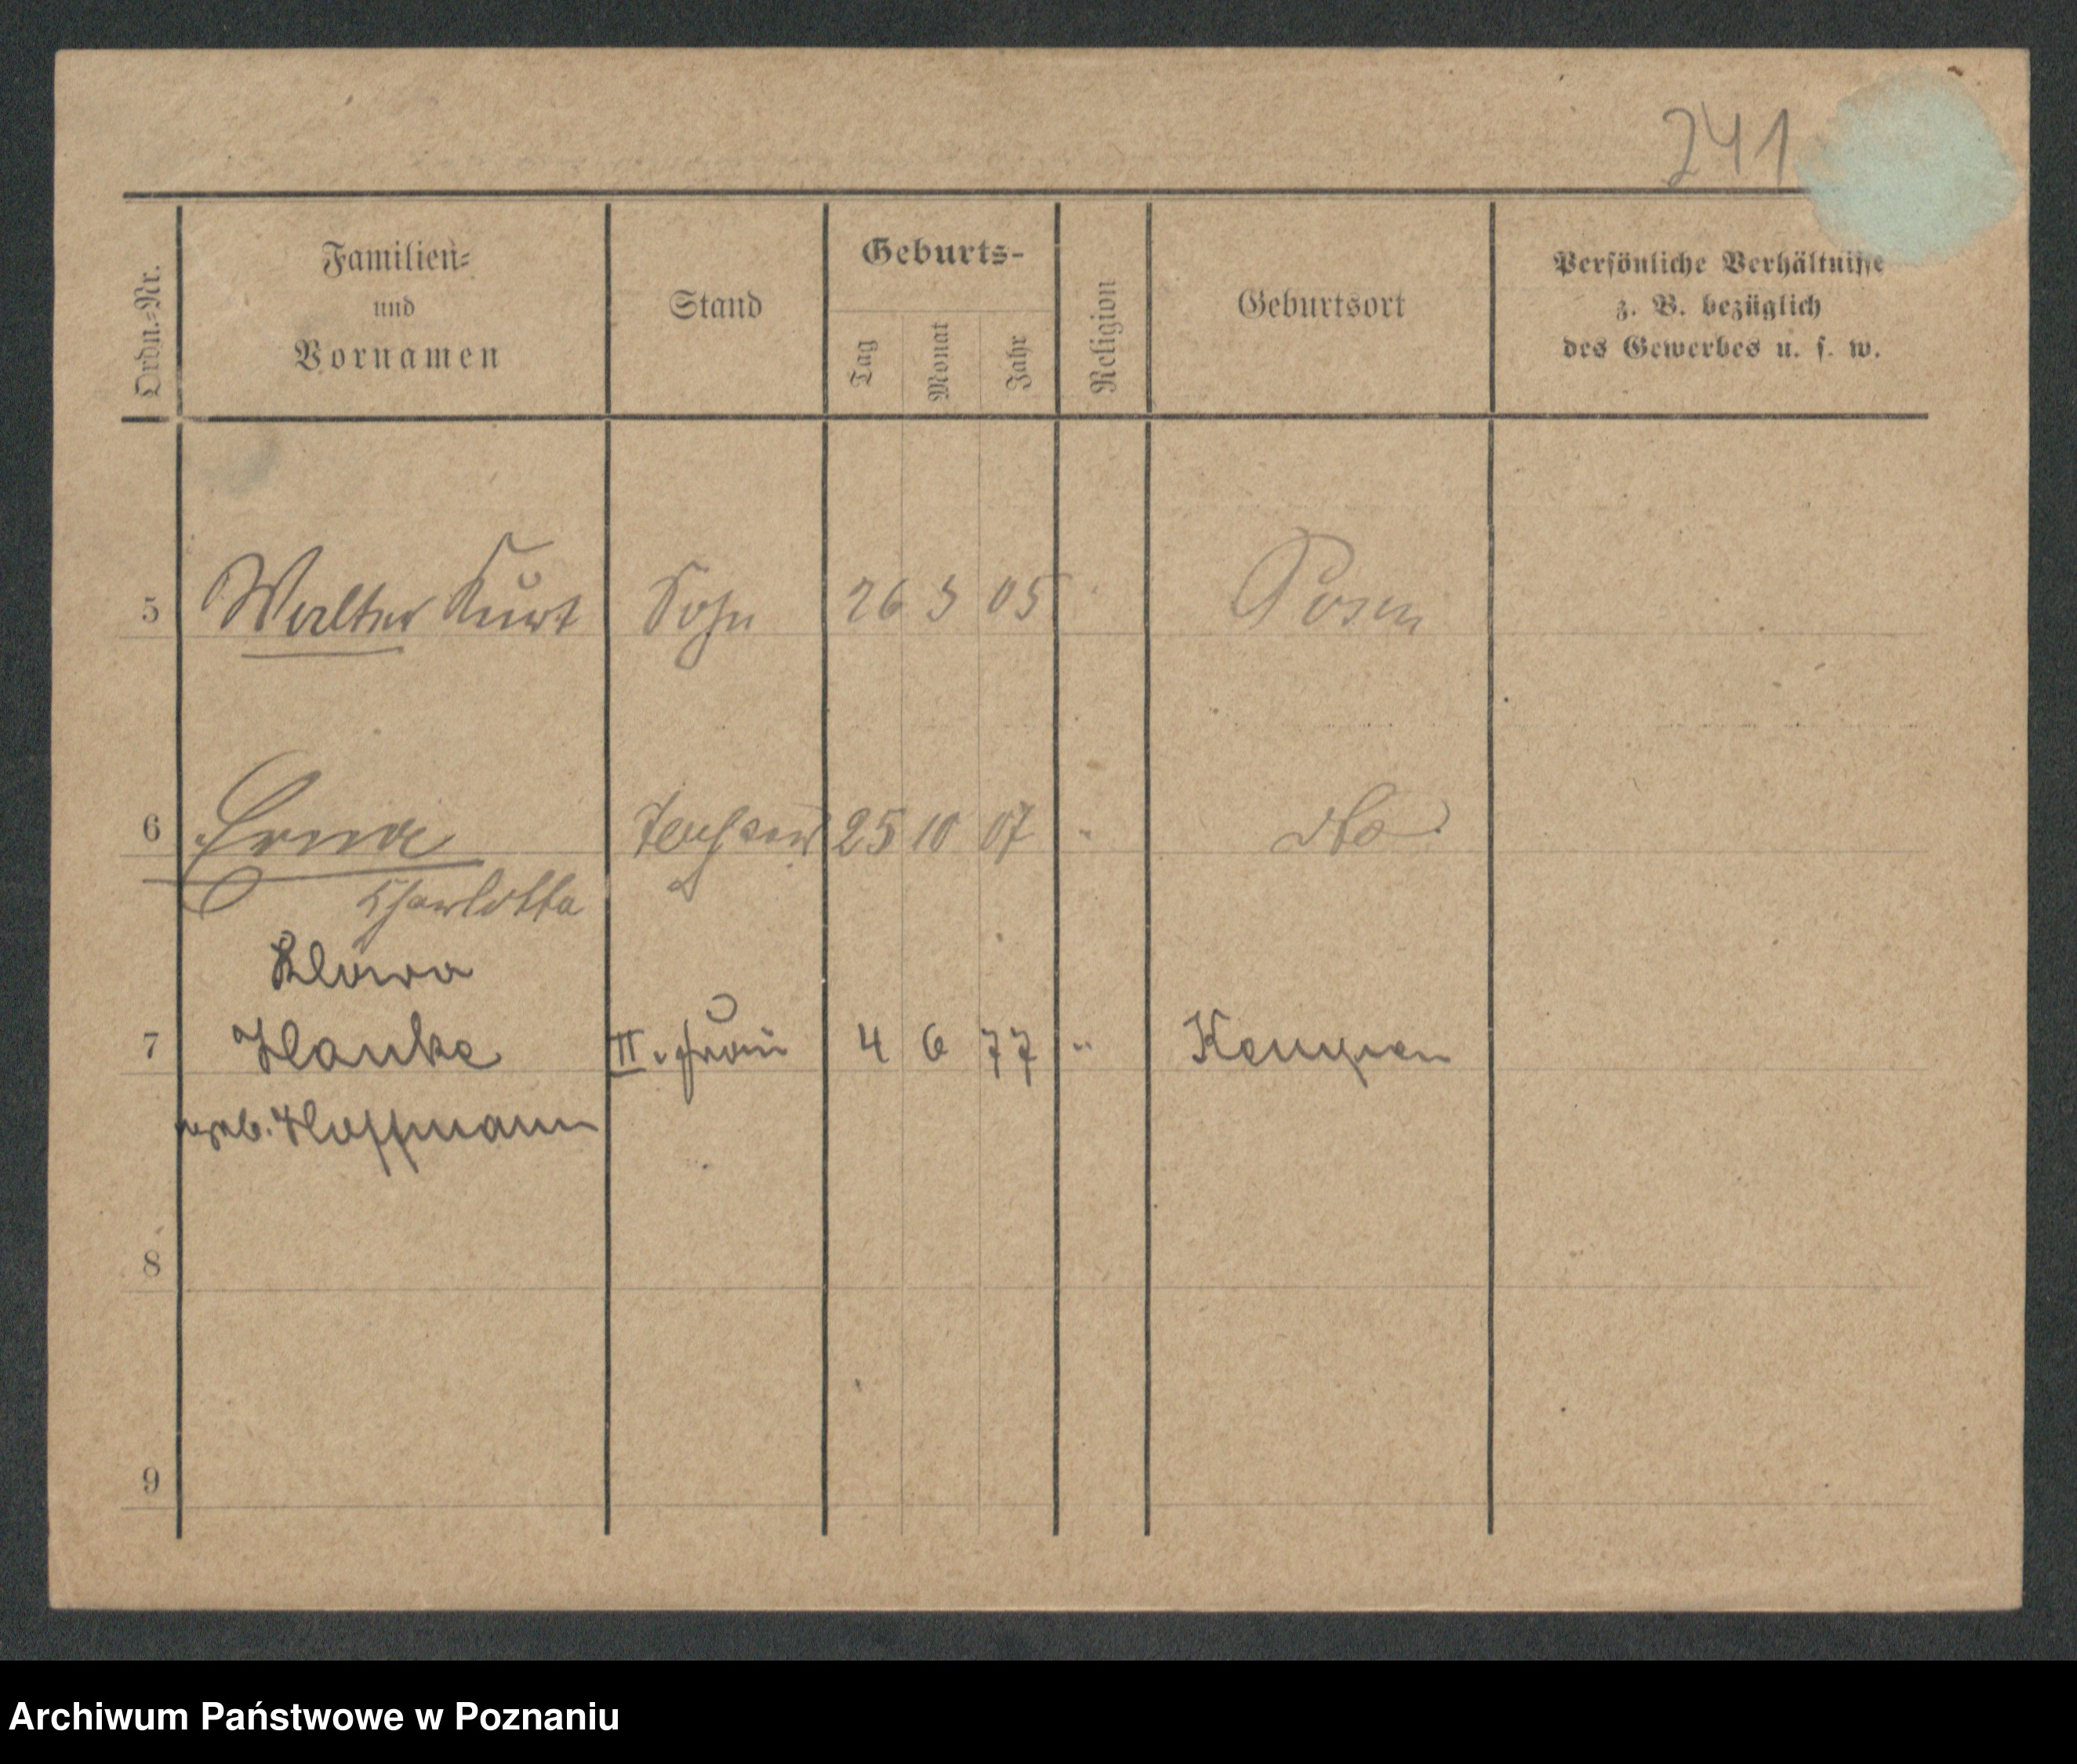 241
Ordn.-Nr.
Familien-
und
Vornamen
Stand
Geburts-
Tag
Monat
Jahr
Religion
Geburtsort
Persönliche Verhältnisse
z. B. bezüglich
des Gewerbes u. s. w.
5 Walter Kurt Sohn 26 3 05 Posen
6 Erna 25 10 07 " do
Charlotte
Klara
7 Hanke II. Frau 4 6 77 " Kempen
geb. Hoffmann
8
9
Archiwum Państwowe w Poznaniu